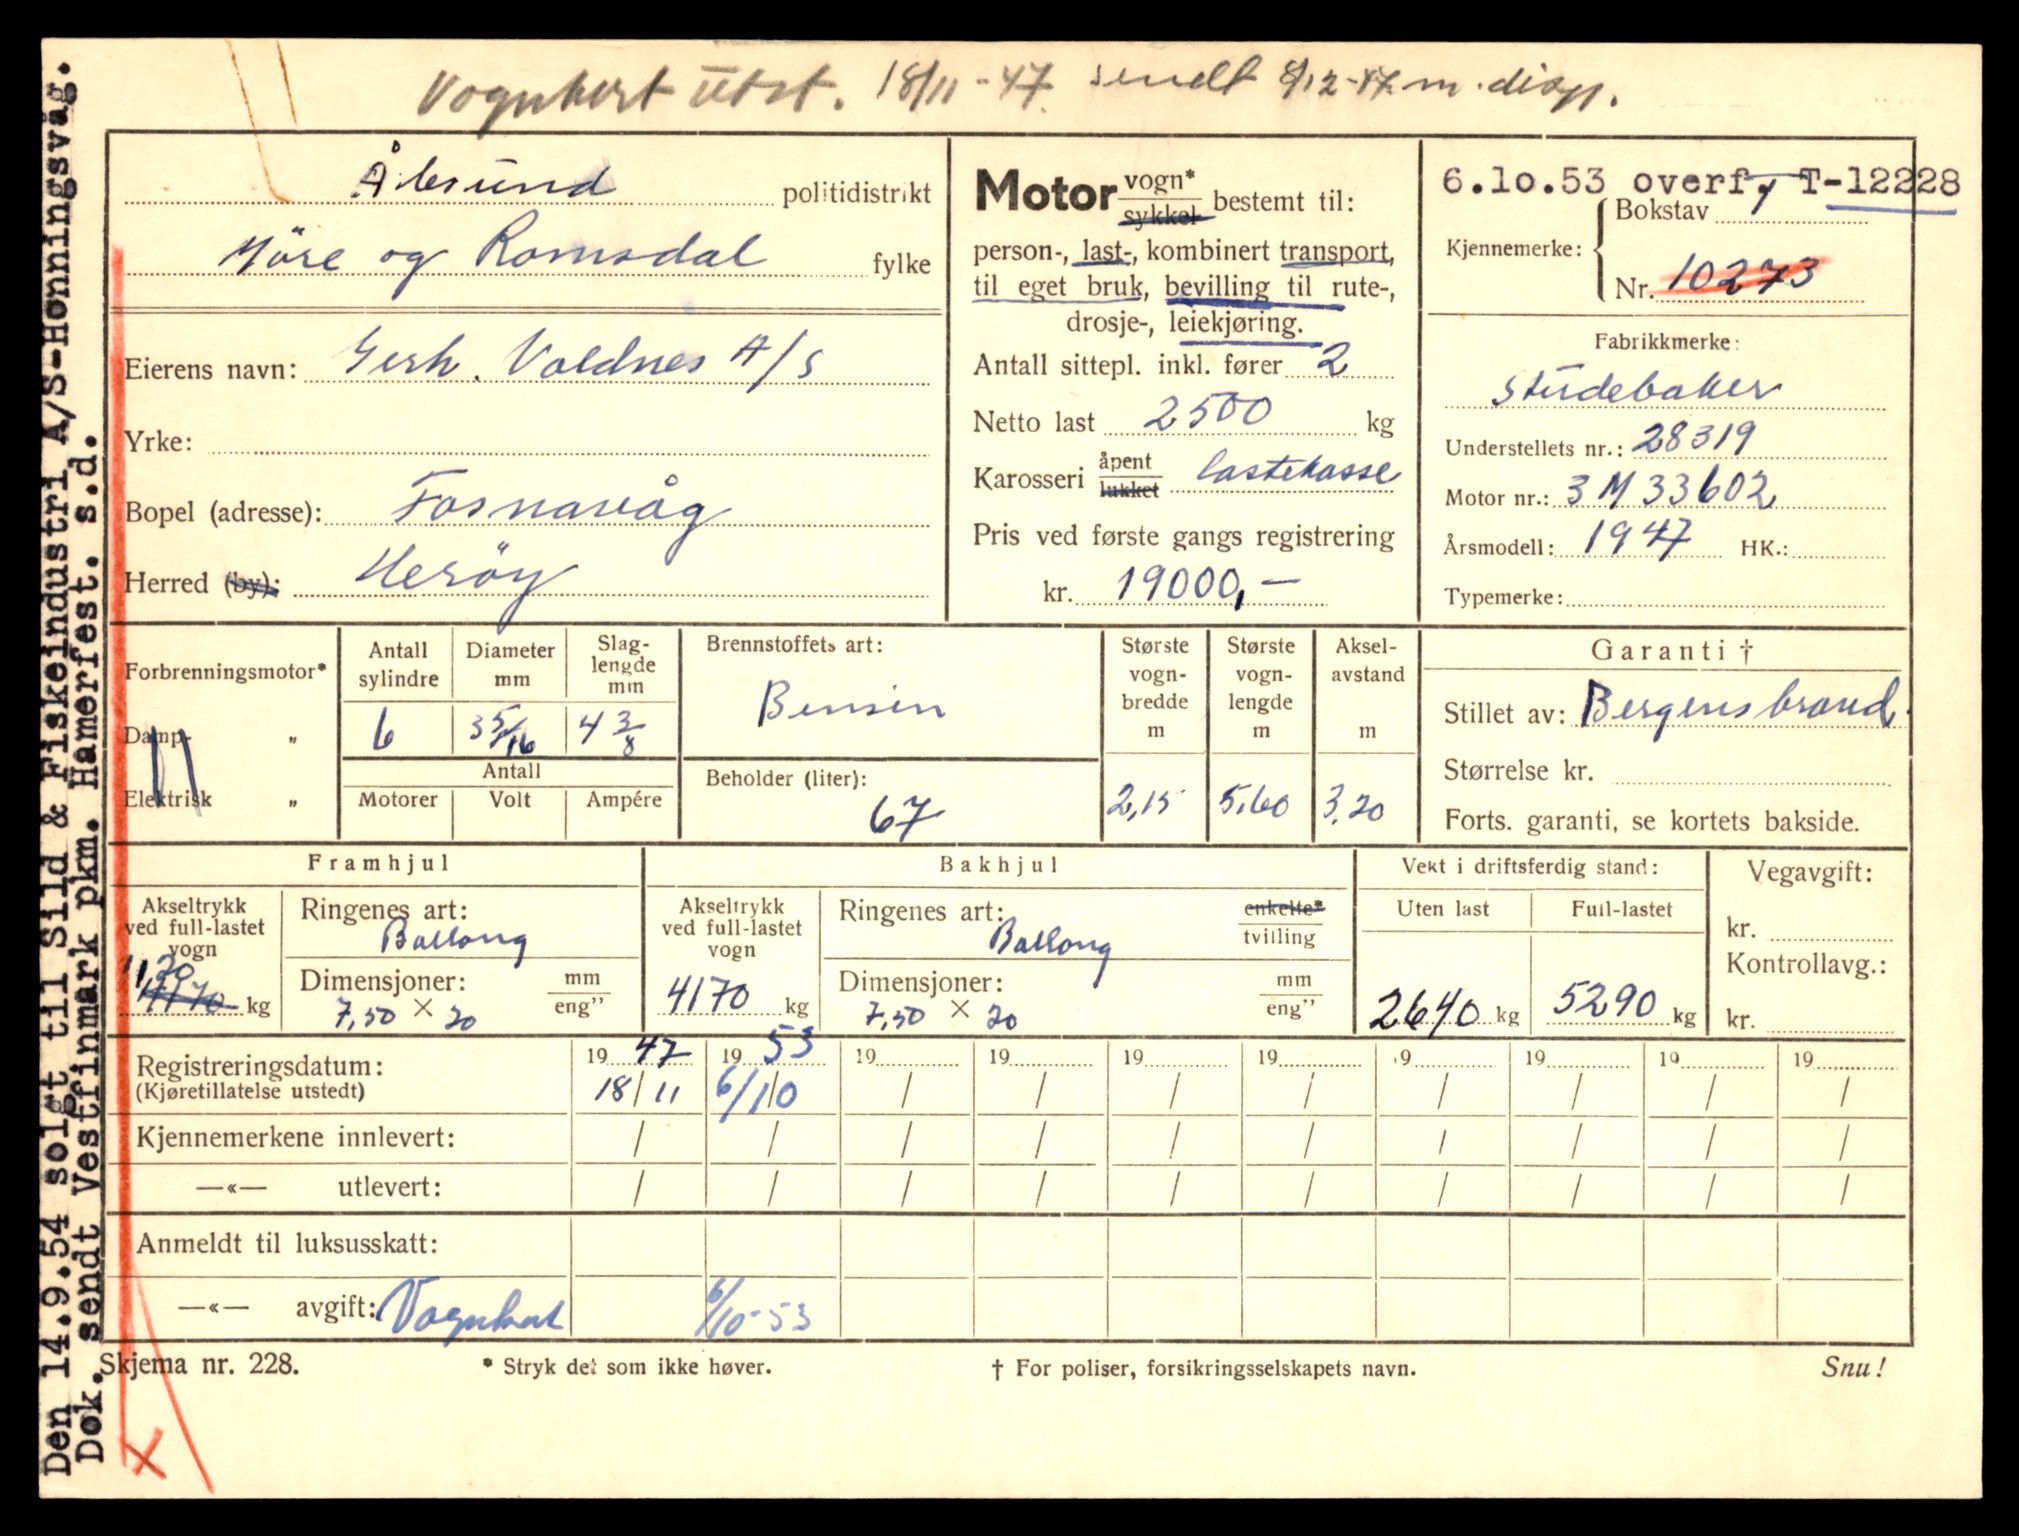 Vognkort utst. 18/11-47. sendt 8/12-47 m. disp.
Ålesund politidistrikt
Möre og Romsdal fylke
Eierens navn: Gerh. Voldnes A/S
Yrke:
Bopel (adresse): Fosnavåg
Herred (by): Heröy
Motor vogn* sykkel bestemt til:
person-, last-, kombinert transport,
til eget bruk, bevilling til rute-,
drosje-, leiekjøring.
Antall sittepl. inkl. fører 2
Netto last 2500 kg
Karosseri åpent lukket lastekasse
Pris ved første gangs registrering
kr. 19000,-
6.10.53 overf. T-12228
Kjennemerke: Bokstav T
Nr. 10273
Fabrikkmerke:
Studebaker
Understellets nr.: 28319
Motor nr.: 3M33602
Årsmodell: 1947 HK.:
Typemerke:
Forbrenningsmotor*
Damp- „
Elektrisk „
Antall sylindre Diameter mm Slag-lengde mm
6 3 5/16 4 3/8
Antall
Motorer Volt Ampére
Brennstoffets art:
Bensin
Beholder (liter):
67
Største vogn-bredde m Største vogn-lengde m Aksel-avstand m
2,15 5,60 3,20
Garanti †
Stillet av: Bergens brand.
Størrelse kr.
Forts. garanti, se kortets bakside.
Framhjul
Akseltrykk ved full-lastet vogn
1120
1170 kg
Ringenes art:
Ballong
Dimensjoner: mm eng”
7,50 × 20
Bakhjul
Akseltrykk ved full-lastet vogn
4170 kg
Ringenes art: enkelte* tvilling
Ballong
Dimensjoner: mm eng”
7,50 × 20
Vekt i driftsferdig stand:
Uten last Full-lastet
2640 kg 5290 kg
Vegavgift:
kr.
Kontrollavg.:
kr.
Registreringsdatum: 19 47 19 53 19 19 19 19 19 19 19 19
(Kjøretillatelse utstedt) 18/11 6/10 / / / / / / / /
Kjennemerkene innlevert: / / / / / / / / / /
—«— utlevert: / / / / / / / / / /
Anmeldt til luksusskatt:
—«— avgift: Vognkort 6/10-53
Skjema nr. 228. * Stryk det som ikke høver. † For poliser, forsikringsselskapets navn. Snu!
Den 14.9.54 solgt til Sild & Fiskeindustri A/S-Honningsvåg.
Dok. sendt Vestfinmark pkm. Hamerfest. s.d.